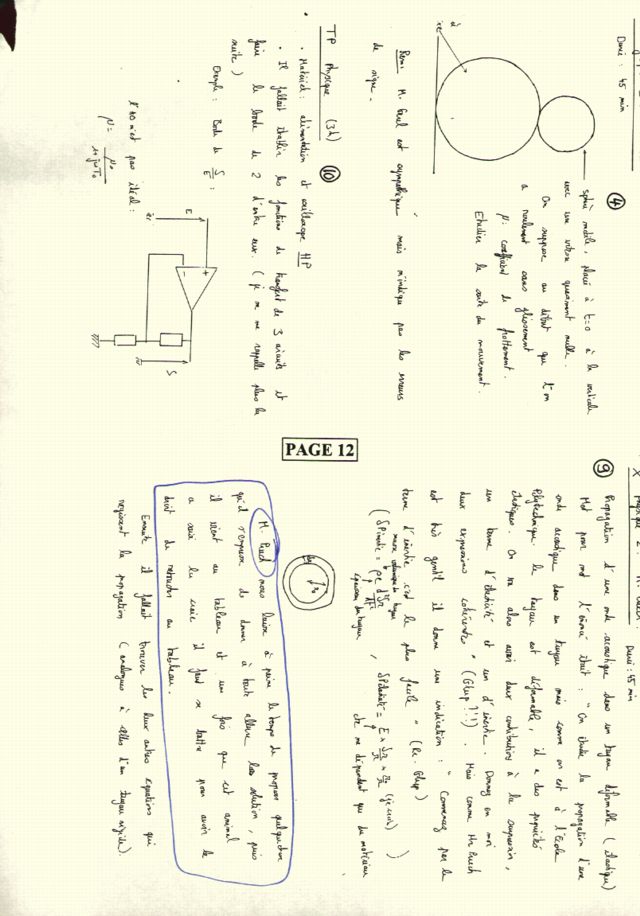 Durée : 45 min
④
sphère mobile, placée à t=0 à la verticale
avec une vitesse quasiment nulle.
On suppose au début que l'on
a roulement sans glissement
μ : coefficient de frottement.
Etudier la suite du mouvement.
Rem : M. est sympathique mais n'indique pas les erreurs
de signe.
TP Physique (3h) ⑩
• Matériel : alimentation et oscilloscope HP
• Il fallait établir les fonctions de transfert de 3 circuits et
faire le bode de 2 d'entre eux. (je ne me rappelle plus la
suite)
Exemple : Bode de S/E :
E
+
-
S
l'AO n'est pas idéal :
μ = μ₀ / 1+jωT₀
PAGE 12
X Physique 2 :
Durée : 45 min
⑨ Propagation d'une onde acoustique dans un tuyau déformable (élastique)
Mot pour mot l'énoncé était : "On étudie la propagation d'une
onde acoustique dans un tuyau mais comme on est à l'Ecole
Polytechnique le tuyau est déformable, il a des propriétés
élastiques. On va alors avoir deux contributions à la surpression,
un terme d'élasticité et un d'inertie. Donnez en moi
deux expressions cohérentes" (Glup !?!). Mais comme Mr Puech
est très gentil il donne une indication : "Commencez par le
terme d'inertie c'est le plus facile" (Re-Glup)
masse volumique du tuyau
épaisseur du tuyau
ne dépendant que du matériau
M. Puech nous laisse à peine le temps de proposer quelque chose
qu'il s'empresse de donner à toute allure la solution, puis
il vient au tableau et une fois que cet animal
a saisi la craie il faut se battre pour avoir le
droit de retourner au tableau.
Ensuite il fallait trouver les deux autres équations qui
régissent la propagation (analogues à celles d'un tuyau rigide).